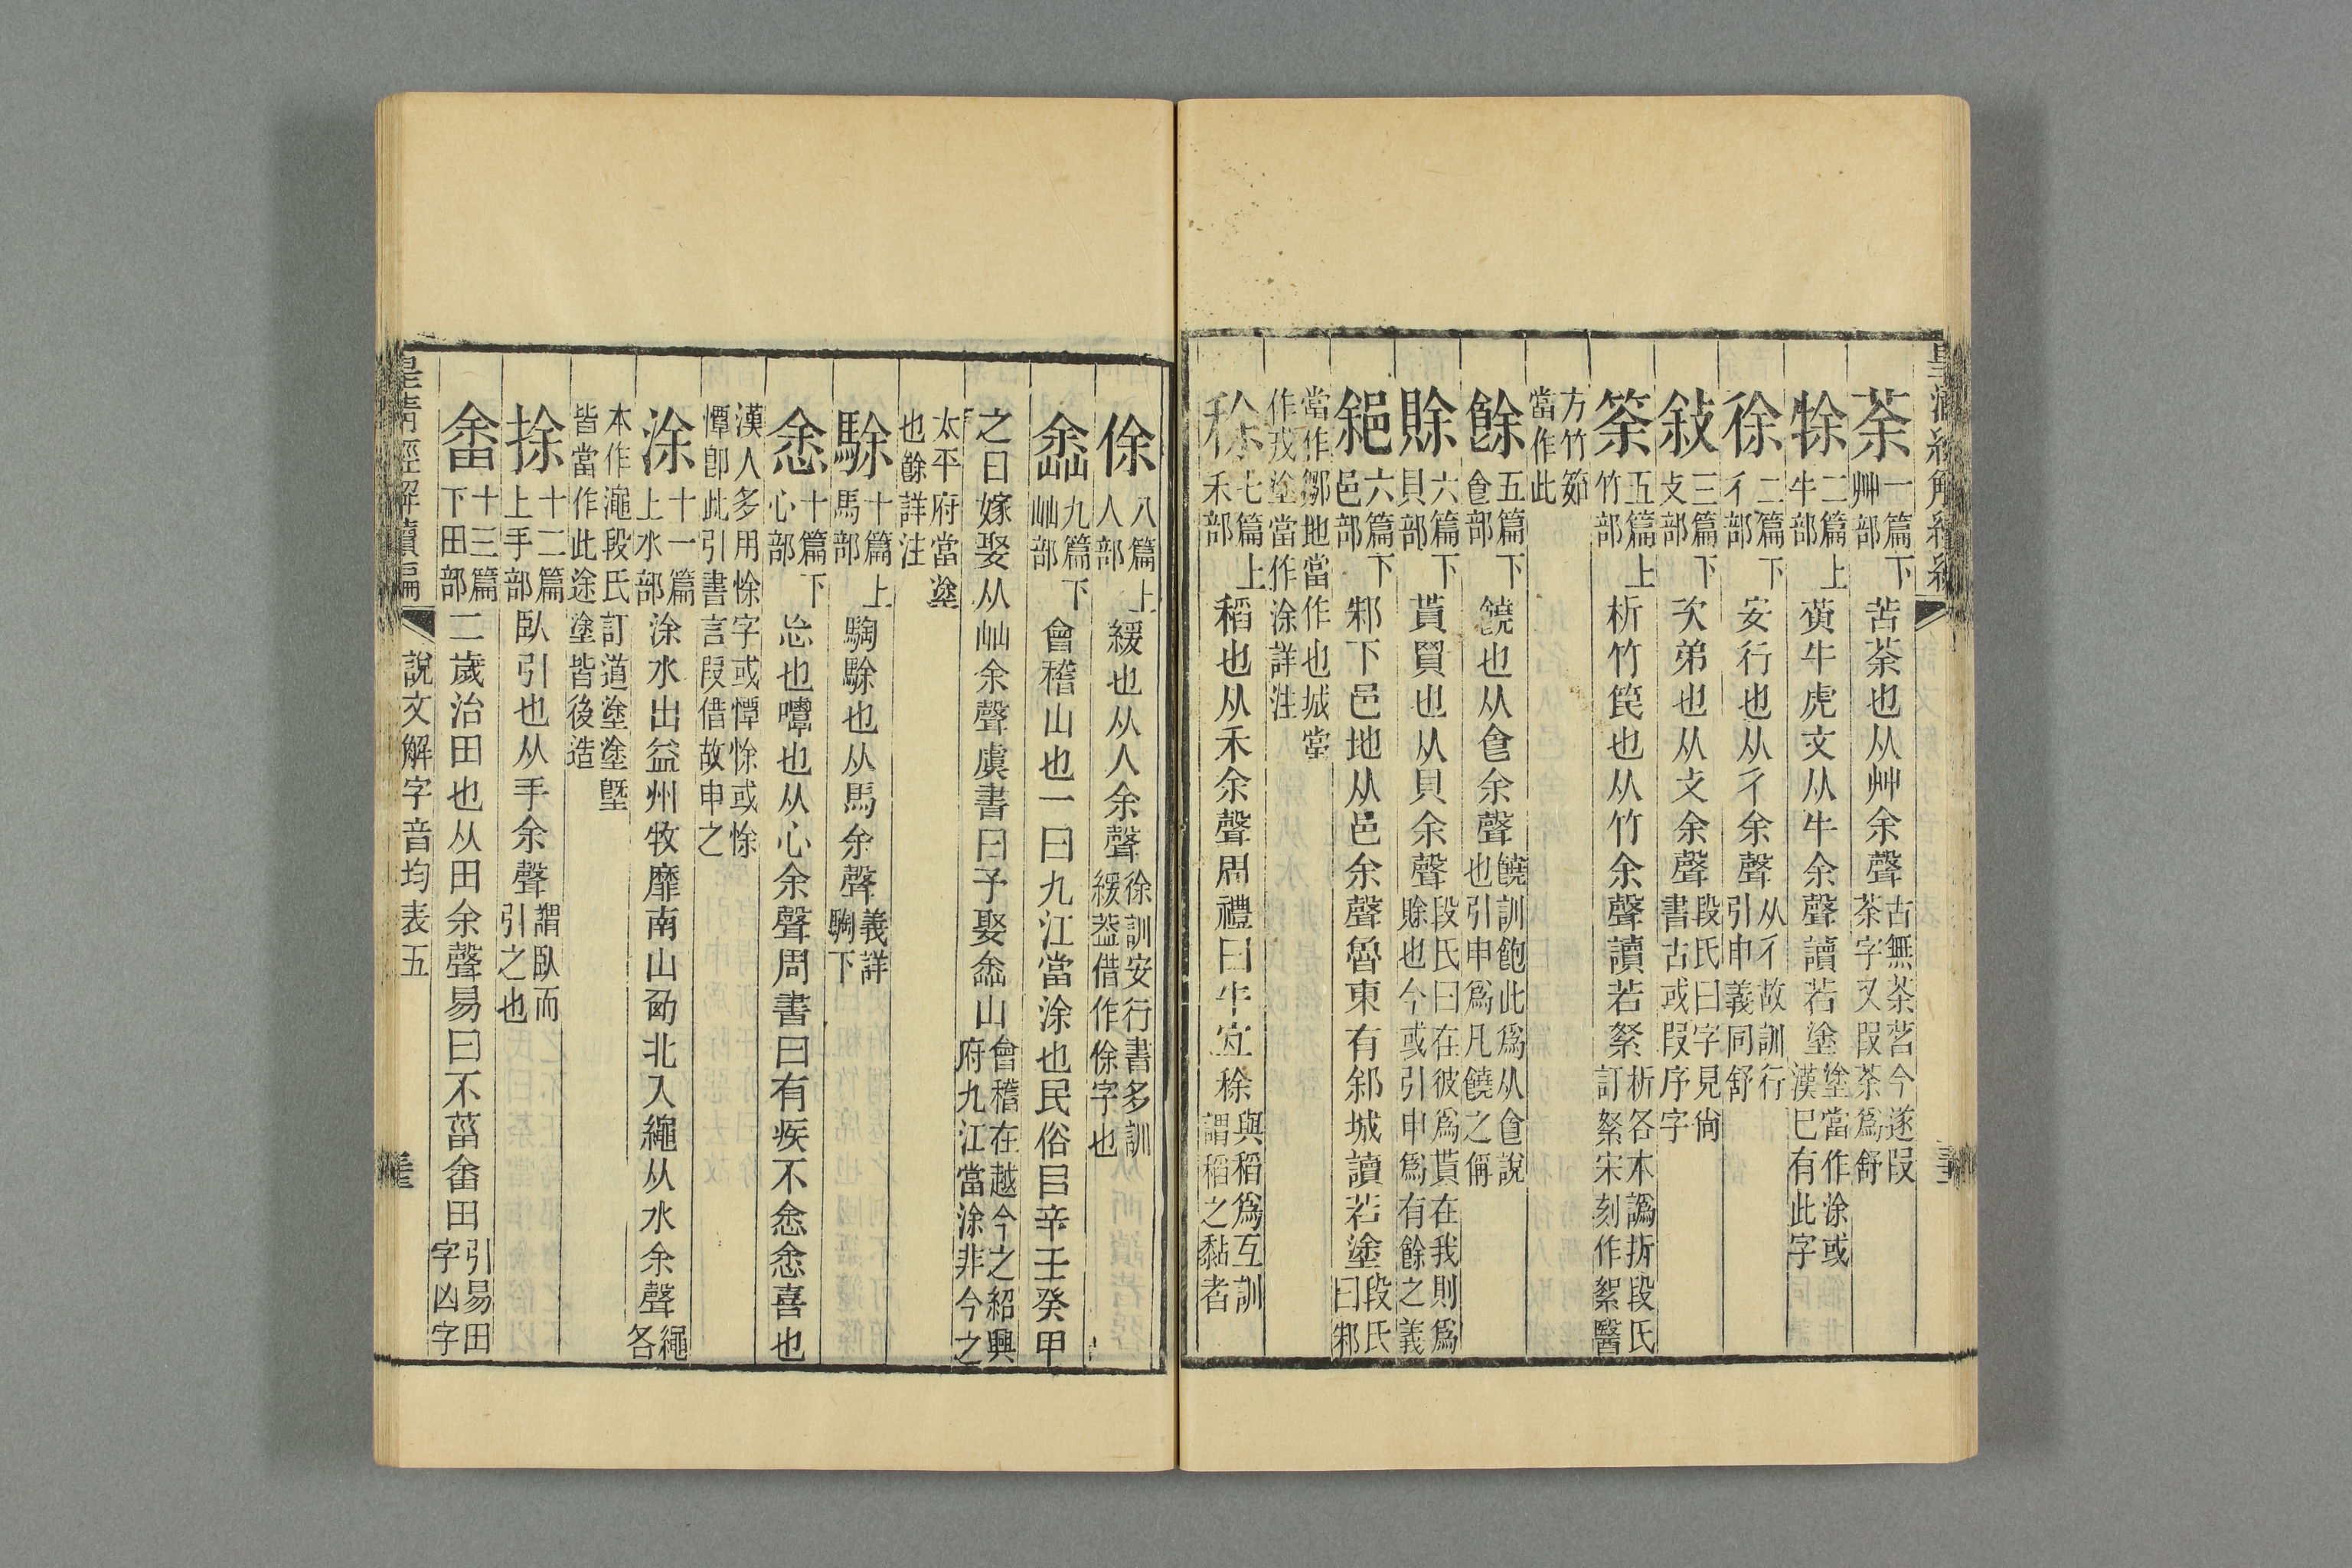 荼一篇下艸部苦荼也从艸余聲古無茶茗今遂叚荼字又叚荼爲舒
㻌二篇上牛部黃牛虎文从牛余聲讀若塗塗當作涂或漢巳有此字
徐二篇下彳部安行也从彳余聲从彳故訓行引申義同舒
敍三篇下攴部次弟也从攴余聲段氏曰字見尙書古或叚序字
筡五篇上竹部析竹笢也从竹余聲讀若絮析各本譌折段氏訂絮宋刻作絮醫
方竹筎當作此
餘五篇下𠊊部饒也从𠊊余聲饒訓飽此爲从𠊊說也引申爲凡饒之偁
賖六篇下貝部貰買也从貝余聲段氏曰在彼爲貰在我則爲賖也今或引申爲有餘之義
䣄六篇下邑部邾下邑地从邑余聲魯東有䣄城讀若塗段氏曰邾
當作鄒地當作也城當作戎塗當作涂詳注
稌七篇上禾部稻也从禾余聲周禮曰牛宜稌與稻爲互訓謂稻之黏者
悇八篇上人部緩也从人余聲徐訓安行書多訓緩葢借作俆字也
嵞九篇下屾部會稽山也一曰九江當涂也民俗㠯辛壬癸甲
之日嫁娶从屾余聲虞書曰予娶嵞山會稽在越今之紹興府九江當涂非今之
太平府當塗也餘詳注
駼十篇上馬部騊駼也从馬余聲義詳騊下
悆十篇下心部忘也嘾也从心余聲周書曰有疾不悆悆喜也
漢人多用悇字或憛悇或悇憛卽此引書言叚借故申之
涂十一篇上水部涂水出益州牧靡南山西北入繩从水余聲繩各
本作澠段氏訂道塗塗墍皆當作此途塗皆後造
捈十二篇上手部臥引也从手余聲謂臥而引之也
畬十三篇下田部二歲治田也从田余聲易曰不菑畬田引易田字凶字
皇淸經解續編
說文解字音均表五